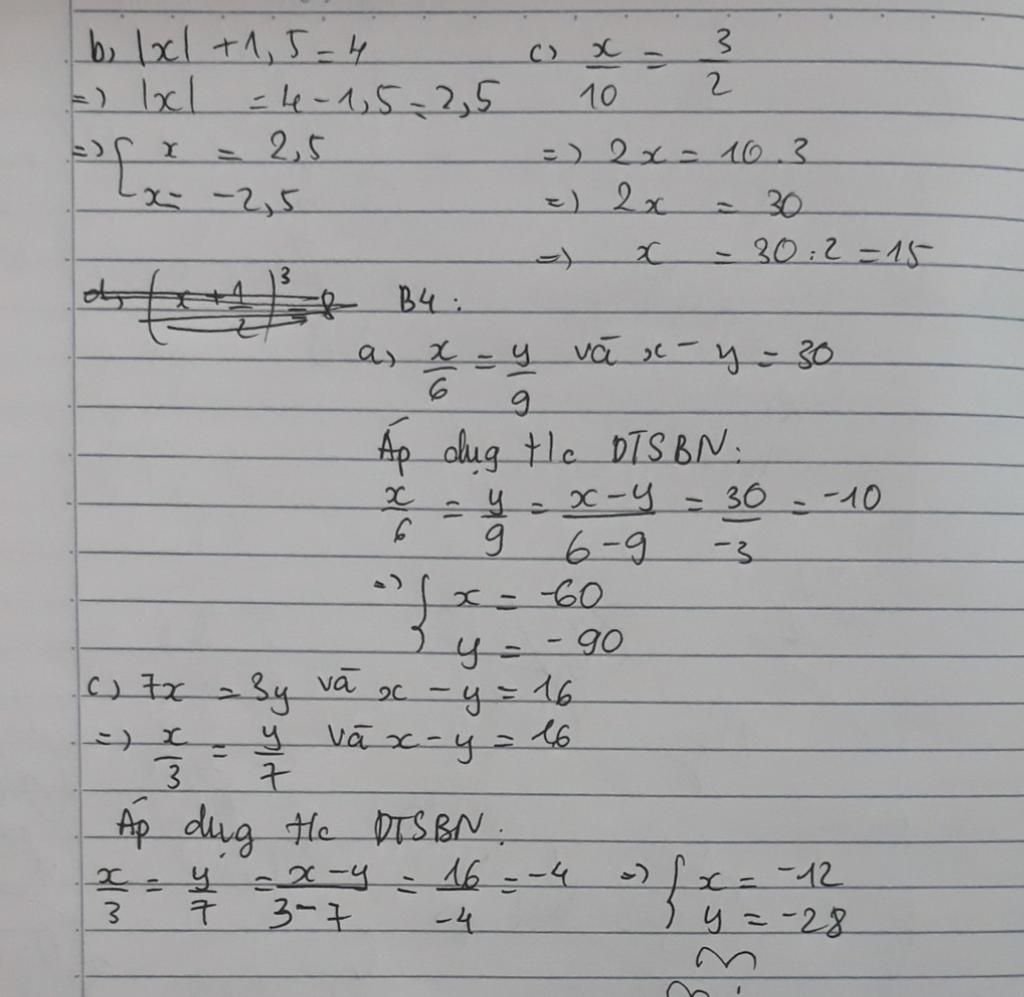 b, |x| + 1,5 = 4
=> |x| = 4 - 1,5 = 2,5
=> [ x = 2,5
x = -2,5
c) x/10 = 3/2
=> 2x = 10.3
=> 2x = 30
=> x = 30:2 = 15
B4:
a, x/6 = y/9 và x - y = 30
Áp dụg t/c DTSBN:
x/6 = y/9 = (x-y)/(6-9) = 30/-3 = -10
=> { x = -60
y = -90
c) 7x = 3y và x - y = 16
=> x/3 = y/7 và x - y = 16
Áp dụg t/c DTSBN:
x/3 = y/7 = (x-y)/(3-7) = 16/-4 = -4 => { x = -12
y = -28